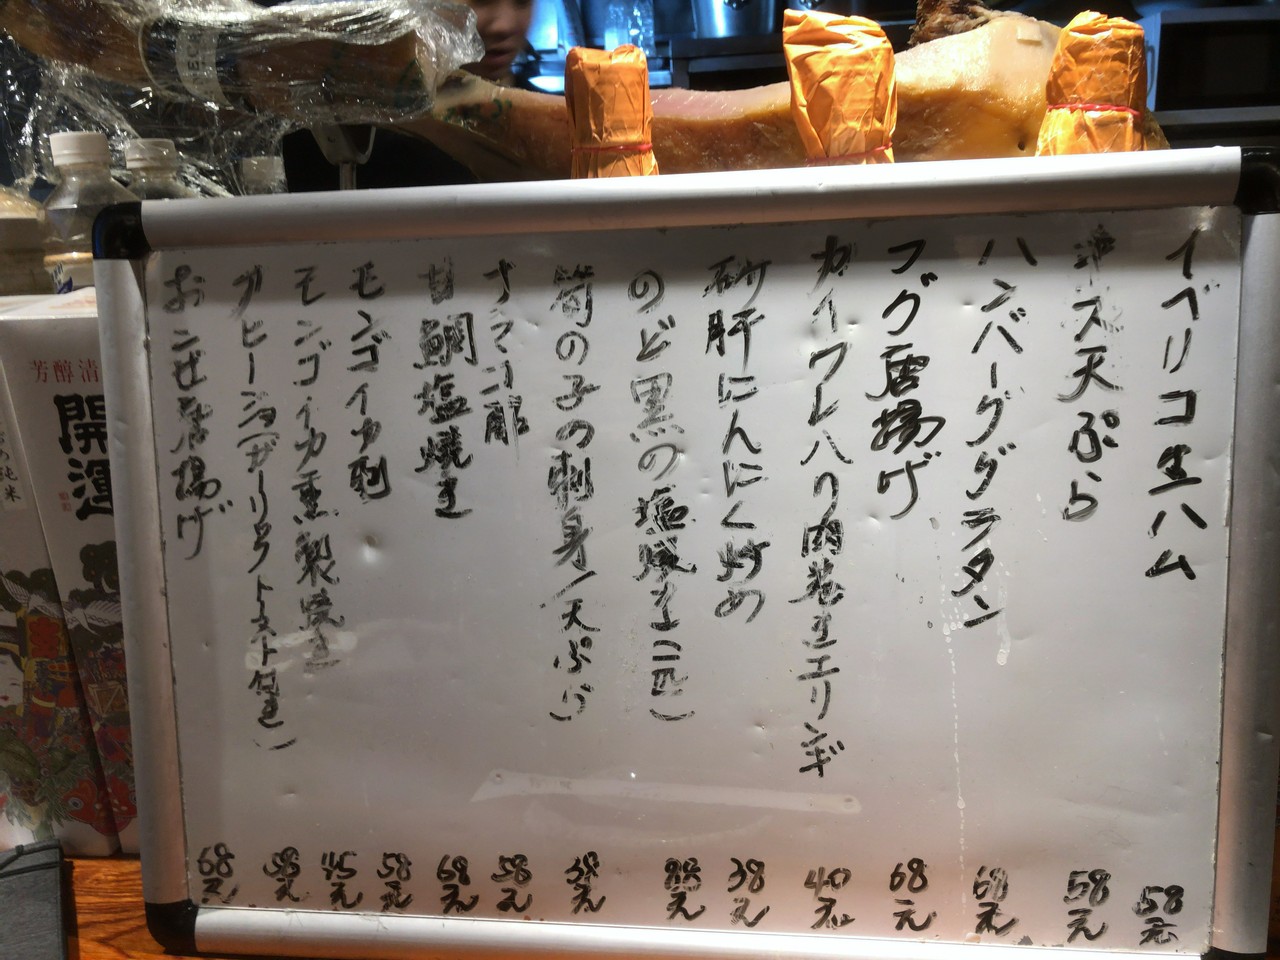 イベリコ生ハム 58元
キス天ぷら 58元
ハンバーググラタン 68元
フグ唐揚げ 68元
カイワレハリ肉巻きエリンギ 40元
砂肝にんにく炒め 38元
のど黒の塩焼き(二匹) 88元
筍の子の刺身/天ぷら) 38元
ナマコ酢 58元
甘鯛塩焼き 68元
モンゴイカ刺 58元
モンゴイカ燻製焼き 45元
アヒージョ(ガーリックトースト付き) 58元
おこぜ唐揚げ 68元
芳醇清
開運
純米